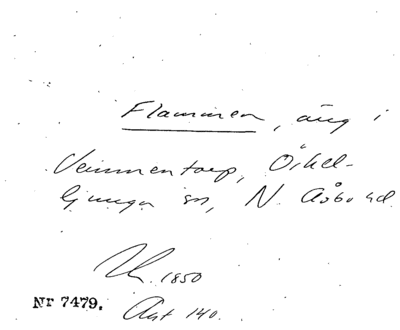 Flammen, äng i
Vemmentorp, Örkel-
ljunga sn, N. Åsbo hd.
1850
Nr 7479. Akt 140.